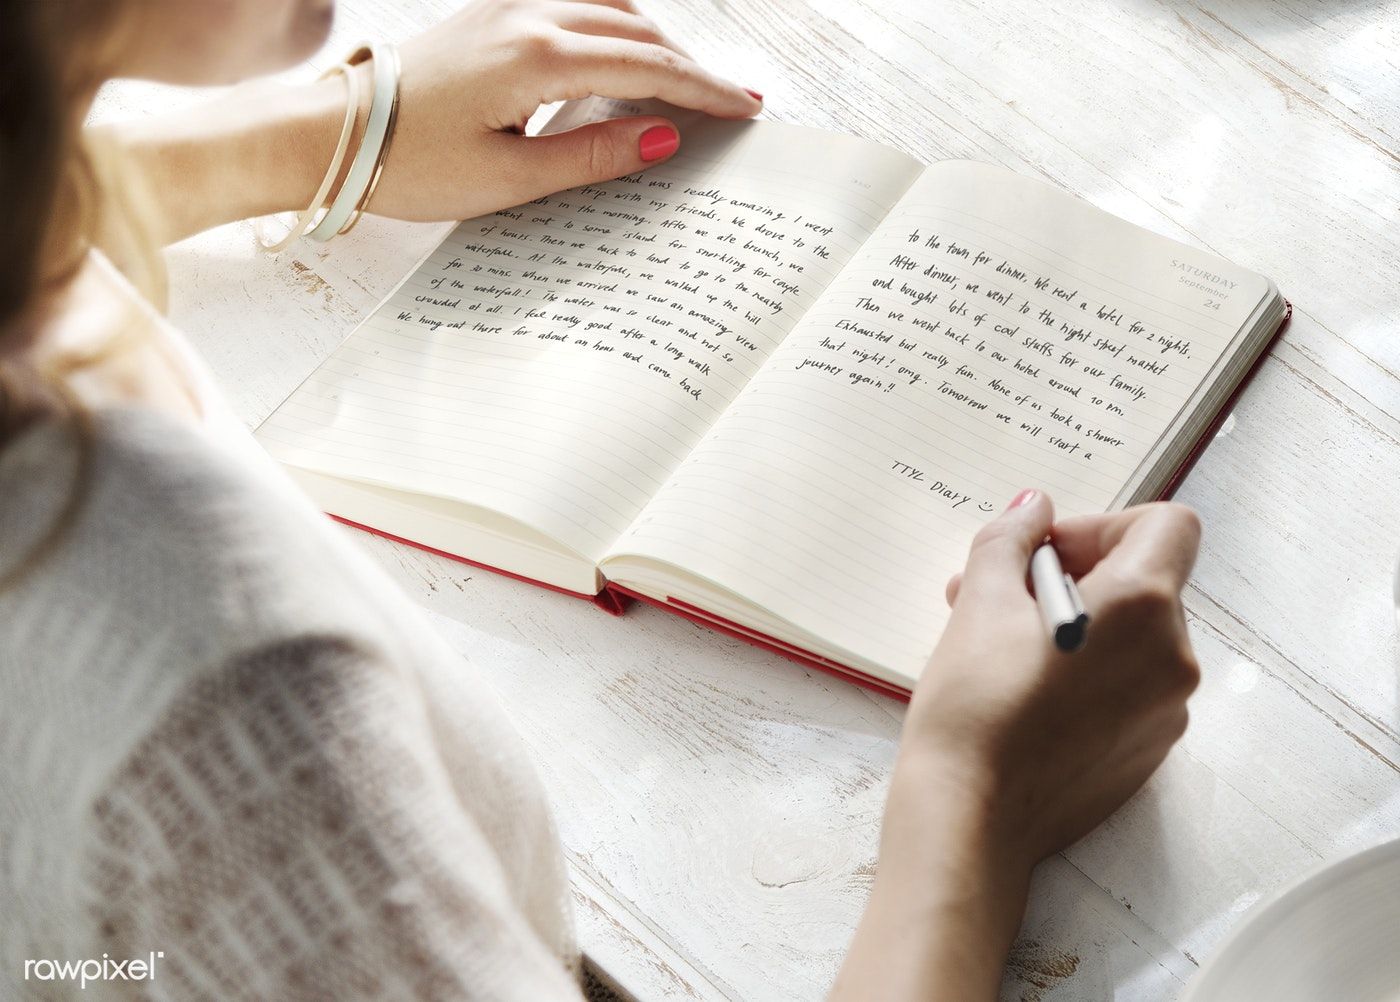 was really amazing. I went
trip with my friends. We drove to the
in the morning. After we ate brunch, we
went out to some island for snorkling for couple
of hours. Then we back to land to go to the nearby
waterfall. At the waterfall, we walked up the hill
for 30 mins. When we arrived we saw an amazing view
of the waterfall! The water was so clear and not so
crowded at all. I feel really good after a long walk
We hung out there for about an hour and came back
SATURDAY
September
24
to the town for dinner. We rent a hotel for 2 nights.
After dinner, we went to the night street market
and bought lots of cool stuffs for our family.
Then we went back to our hotel around 10 pm.
Exhausted but really fun. None of us took a shower
that night! omg. Tomorrow we will start a
journey again!!
TTYL Diary
rawpixel